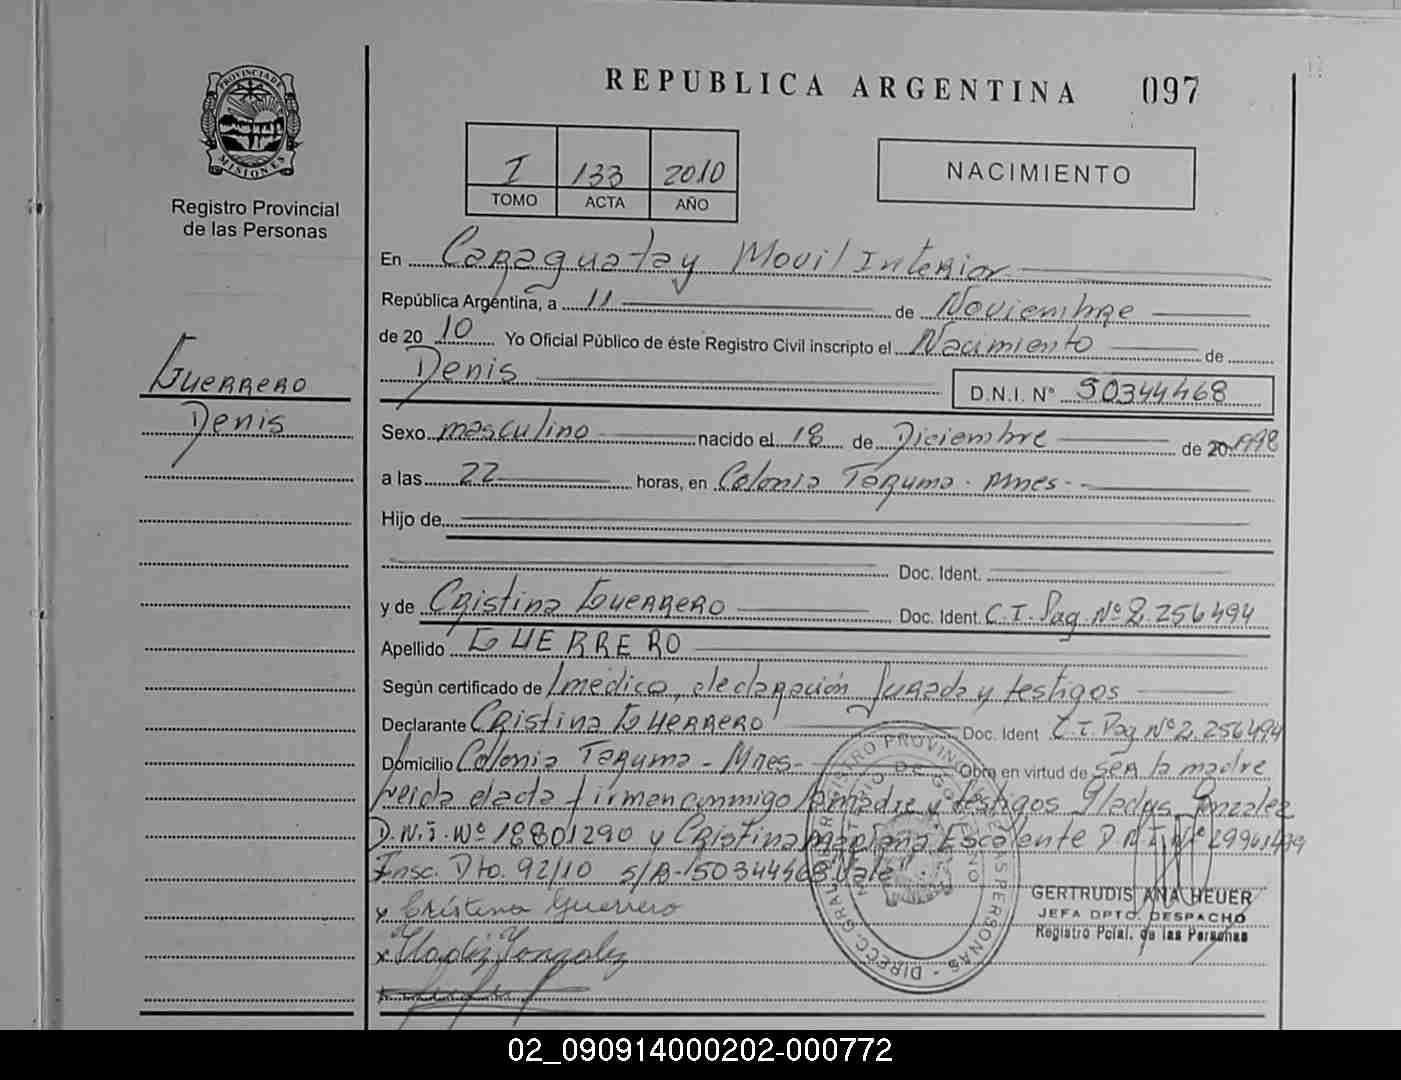 REPUBLICA ARGENTINA 097
PROVINCIA DE MISIONES
Registro Provincial
de las Personas
I 133 2010
TOMO ACTA AÑO
NACIMIENTO
En Caraguatay Movil Interior
República Argentina, a 11 de Noviembre
de 20 10 Yo Oficial Público de éste Registro Civil inscripto el Nacimiento de
Denis D.N.I. N° 50344468
Guerrero
Denis
Sexo masculino nacido el 18 de Diciembre de 20 1998
a las 22 horas, en Colonia Taruma - Mnes -
Hijo de
Doc. Ident.
y de Cristina Guerrero Doc. Ident. C.I. Pag. Nº 2.256494
Apellido GUERRERO
Según certificado de médico, declaración Jurada y testigos
Declarante Cristina GUERRERO Doc. Ident C.I. Pag Nº 2.256494
Domicilio Colonia Taruma - Mnes - Obra en virtud de ser la madre
leida el acta firman conmigo la madre y testigos Gladys Gonzalez
D.N.I. Nº 18801290 y Cristina Mariana Escalante D N I Nº
Insc. Dto. 92/10 s/R- "50344468 Vale"
x Cristina Guerrero
x Gladiz Gonzalez
GERTRUDIS ANA HEUER
JEFA DPTO. DESPACHO
Registro Pcial. de las Personas
DIRECC. GRAL. REGISTRO PROVINCIAL DE LAS PERSONAS
02_090914000202-000772